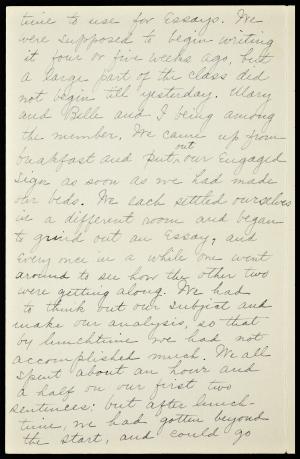 time to use for Essays. We
were supposed to begin writing
it four or five weeks ago, but
a large part of the class did
not begin till yesterday. Mary
and Belle and I being among
the member. We came up from
breakfast and put out our Engaged
sign as soon as we had made
our beds. We each settled ourselves
in a different room and began
to grind out an Essay, and
every once in a while one went
around to see how the other two
were getting along. We had
to think out our subject and
make our analysis, so that
by lunchtime we had not
accomplished much. We all
spent about an hour and
a half on our first two
sentences: but after lunch-
time, we had gotten beyond
the start, and could go